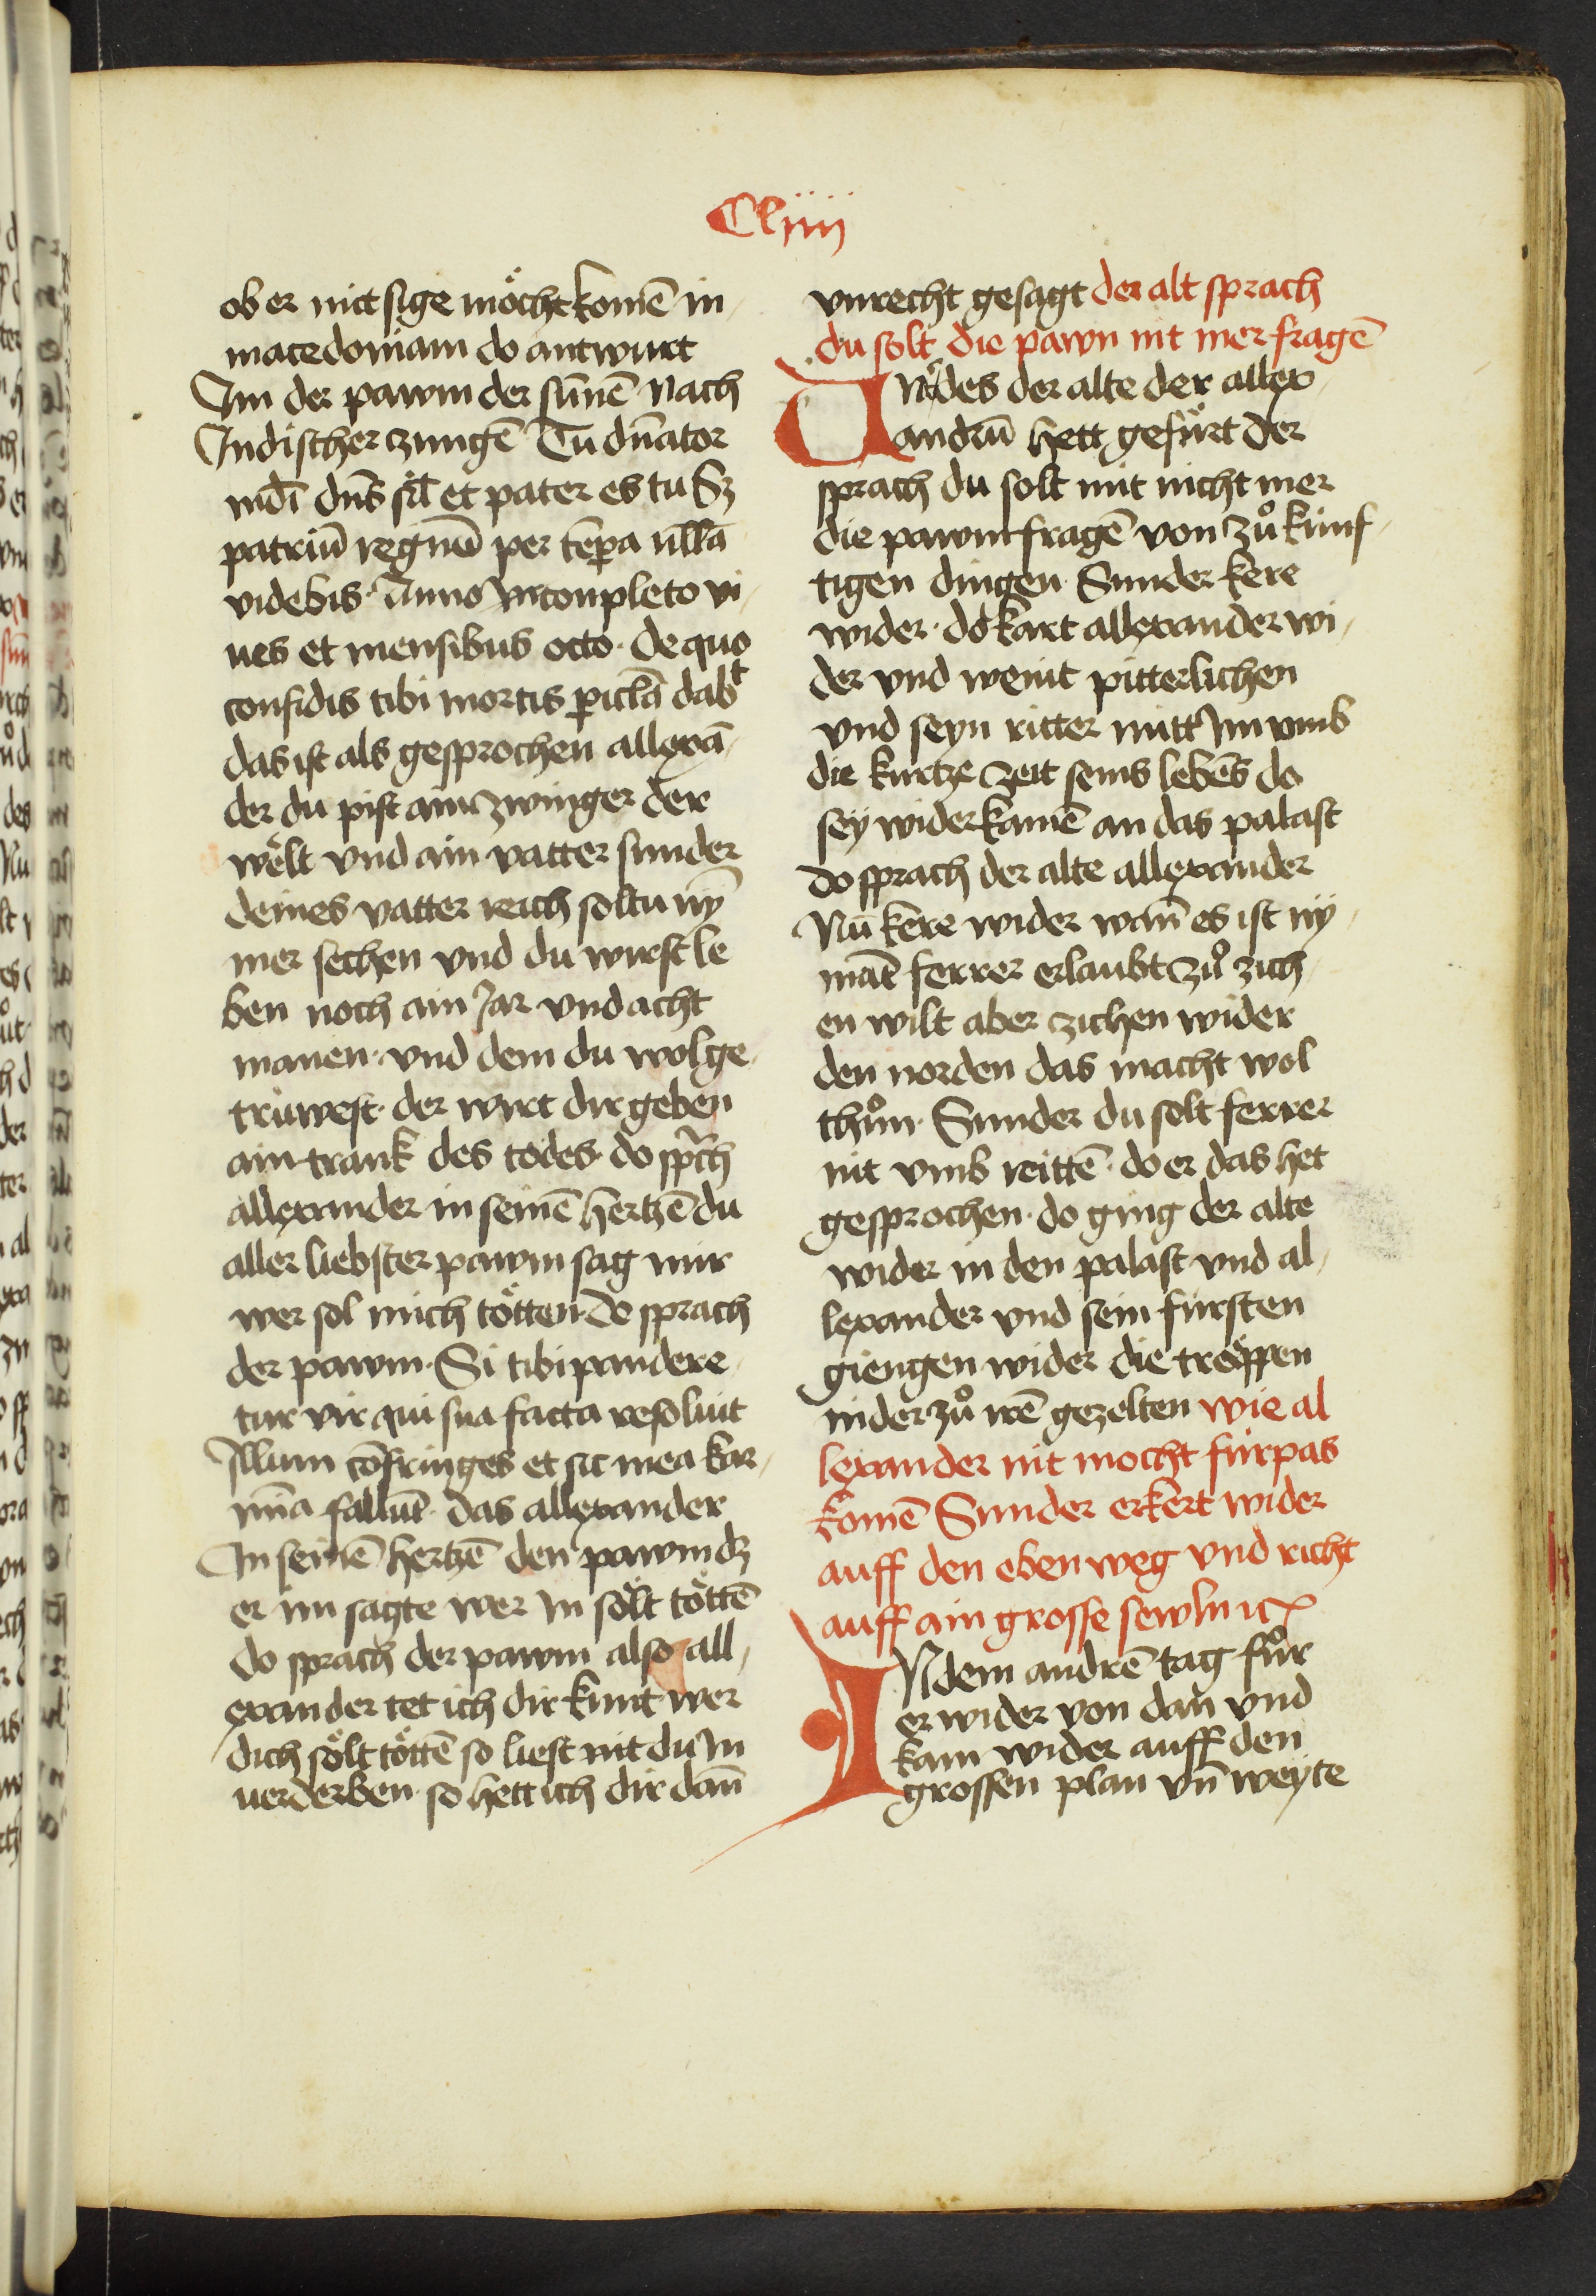 Cliiii
ob er mit sige möcht komē in
macedoniam do antwurt
Im der pawm der sūnē nach
Indischer zungē Tu dn̄ator
mdī dn̄s sīl et pater es tu Sz
patriū regnū per tēpa nllā
videbis. Anno Incompleto vi
ues et mensibus octo. de quo
confidis tibi mortis piclā dabt
das ist als gesprochen allexā
der du pist ain zwinger der
wëlt vnd ain vatter sunder
deines vatter reich soltu ny̅
mer sechen vnd du wirst le
ben noch ain Jar vnd acht
manen. vnd dem du wol ge
trüwest. der wirt dir geben
ain trank des todes. do sprch
allexander in seinē hertzē du
aller liebster pawm sag mir
wer sol mich tötten. do sprach
der pawm. Si tibi pandere
tur vir qui sua facta resoluit
Illum cōfringes et sic mea kar
mīa fallūt. das allexander
In seinē hertzē den pawm dz
er im sagte wer In sölt töttē
do sprach der pawm also all
exander tet ich dir kunt wer
dich sölt töttē so liest nit du In
uerderben. so hett ich dir dan̄
vnrecht gesagt der alt sprach
du solt die pawn nit mer fragē
Undes der alte der allex
andrū hett gefürt der
sprach du solt mit nicht mer
die pawm fragē von zů künf
tigen dingen. Sunder kere
wider. do kart allexander wi
der vnd weint pitterlichen
vnd seyn ritter mitt Im vmb
die kurtze zeit seins lebēs do
sey wider kamē an das palast
do sprach der alte allexander
Nu kere wider wan̄ es ist ny
māt ferrer erlaubt zů zich
en wilt aber zichen wider
den norden das macht wol
thůn. Sunder du solt ferrer
nit vmb reittē. do er das het
gesprochen. do ging der alte
wider in den palast vnd al
lexander vnd sein fürsten
giengen wider die treppen
nider zů irē gezelten wie al
lexander nit mocht fürpas
komē Sunder er kert wider
auff den eben weg vnd richt
auff ain grosse sewln ic
INdem andrē tag für
er wider von dan̄ vnd
kam wider auff den
grossen plan vn̄ weyte